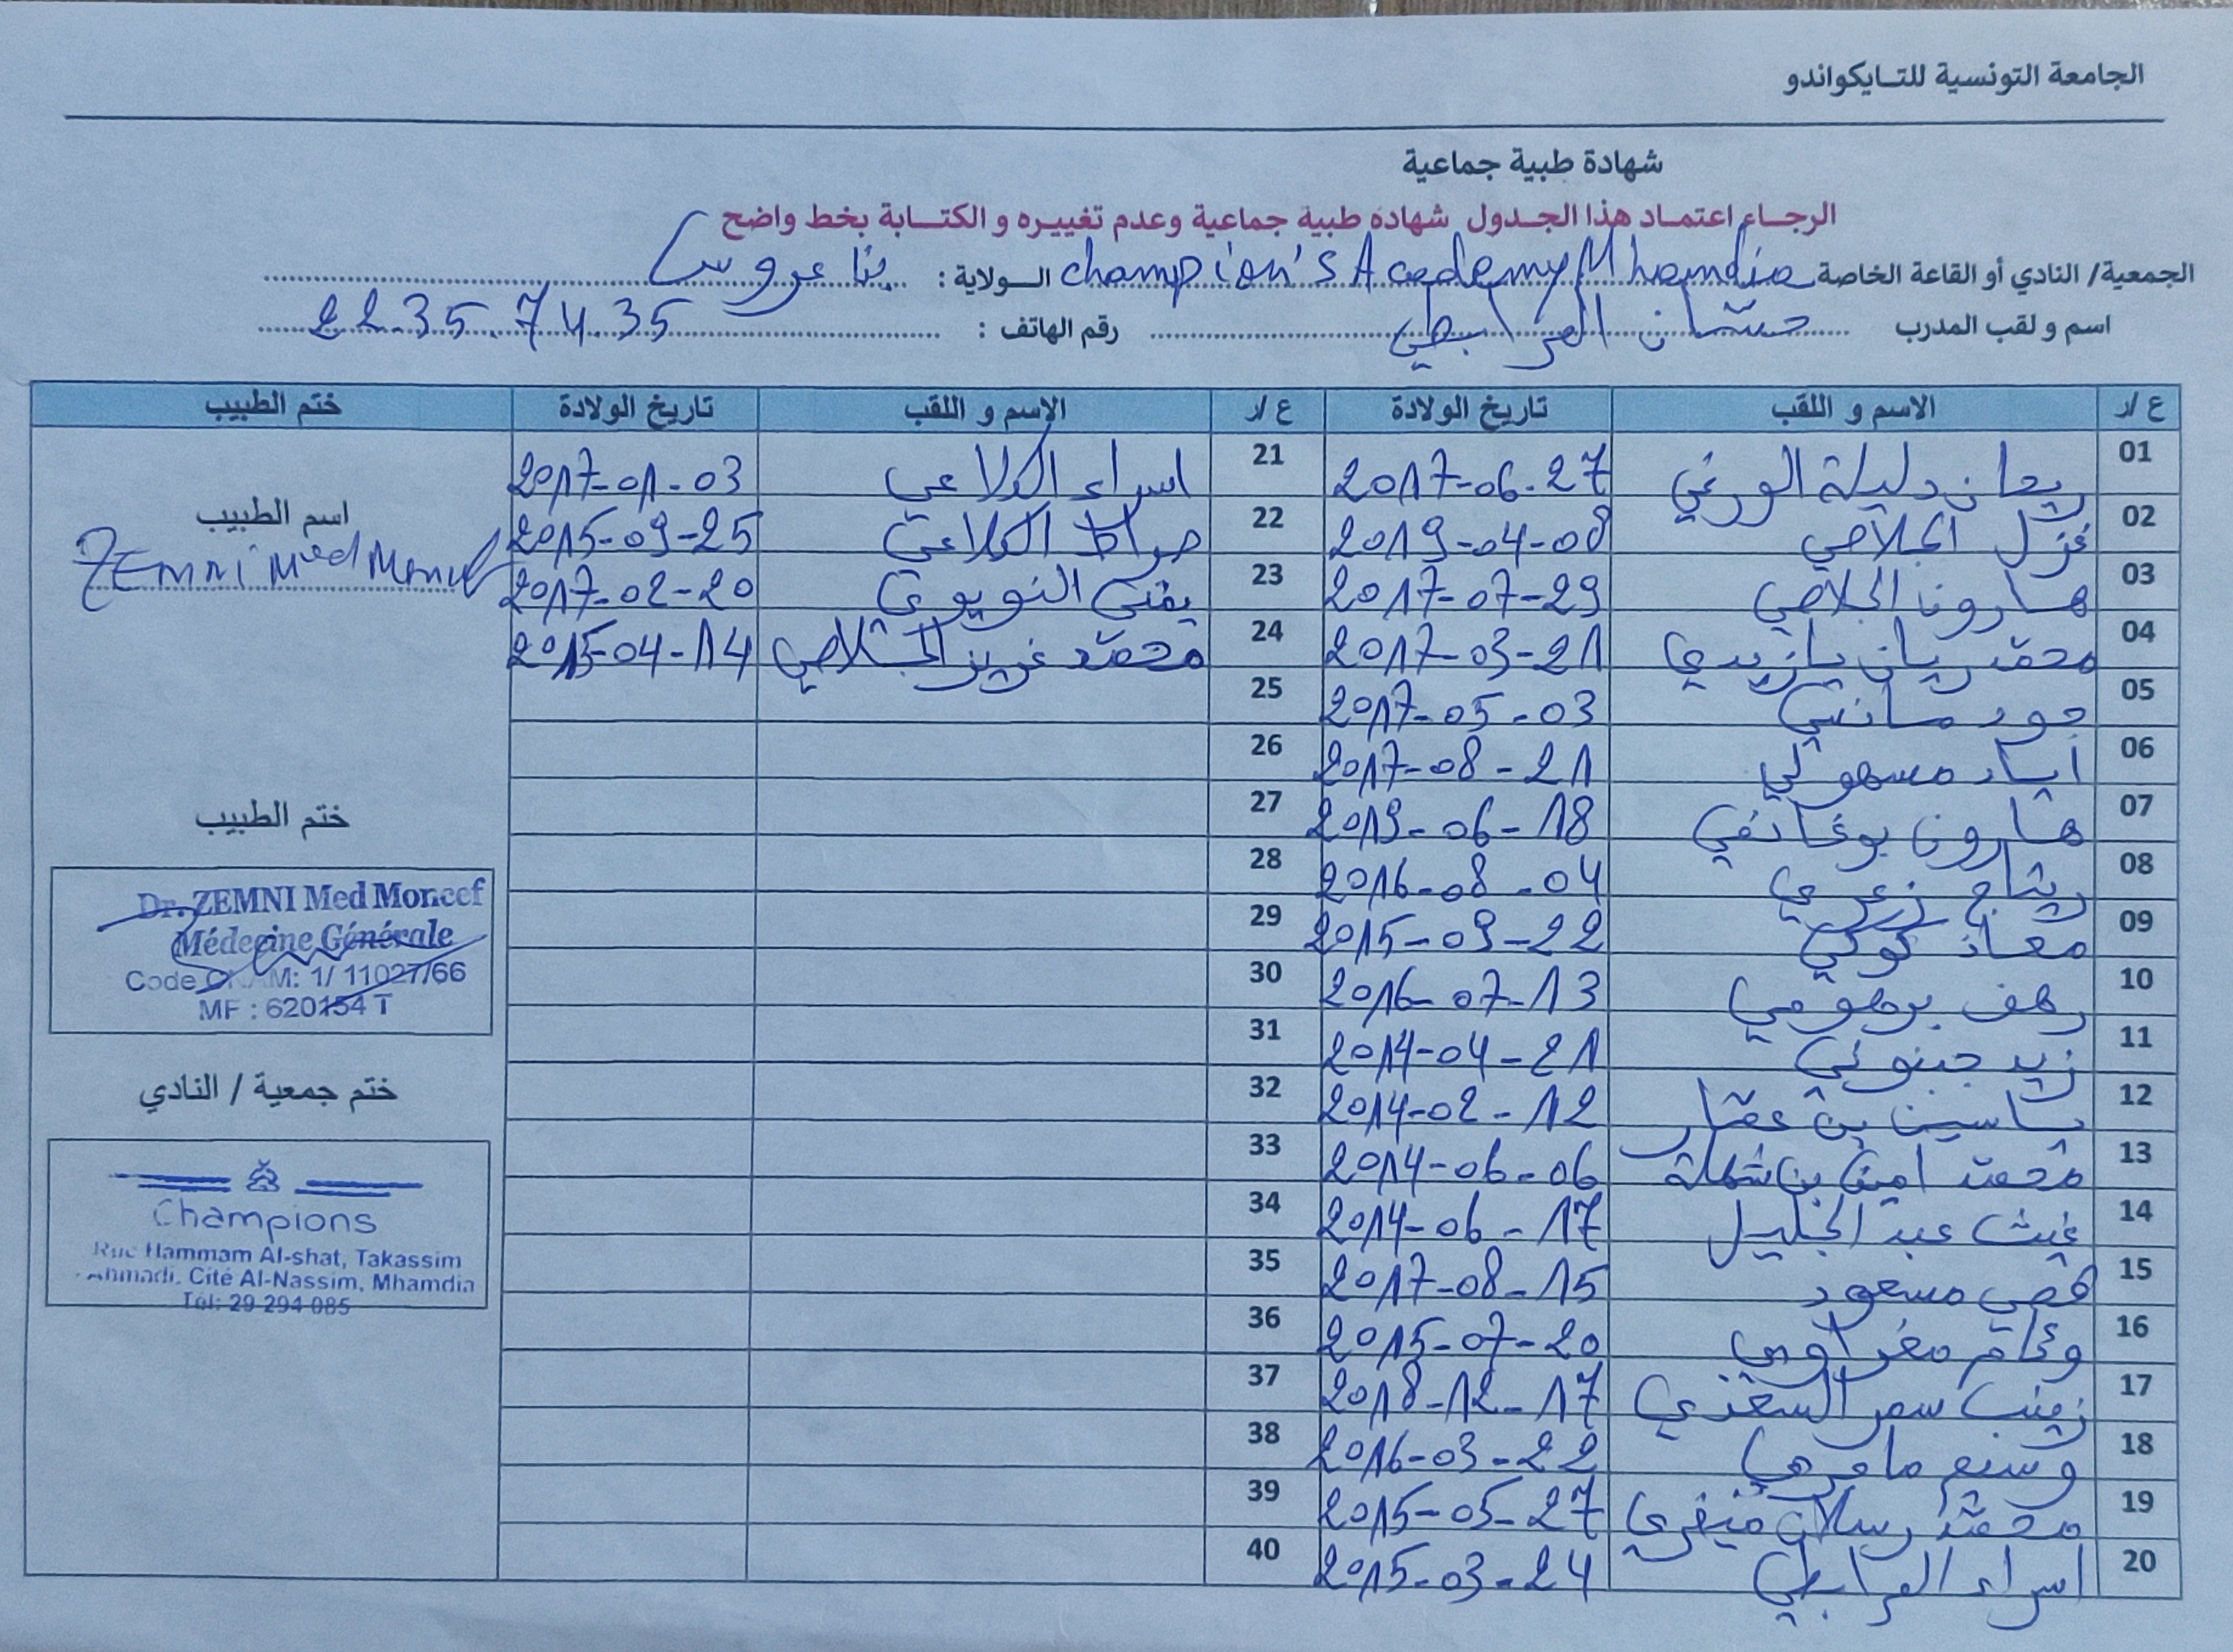 الجامعة التونسية للتايكواندو
شهادة طبية جماعية
الرجاء اعتماد هذا الجدول شهادة طبية جماعية وعدم تغييره و الكتابة بخط واضح
الجمعية/ النادي أو القاعة الخاصة champion's Academy Mhamdia الولاية : بنا عروس
اسم و لقب المدرب حسّان المرابطي رقم الهاتف : 22.35.74.35
ع /ر الاسم و اللقب تاريخ الولادة ع /ر الاسم و اللقب تاريخ الولادة ختم الطبيب
01 ريحان دليلة الورغي 2017-06-27
02 غزل الجلاصي 2019-04-08
03 هارون الجلاصي 2017-07-29
04 محمد ريان يازيدي 2017-03-21
05 جود مانسي 2017-05-03
06 اياد سهولي 2017-08-21
07 هارون بوغانمي 2019-06-18
08 ريتاج زعري 2016-08-04
09 معاذ كوكي 2015-09-22
10 رهف برهومي 2016-07-13
11 زيد جبنوني 2014-04-21
12 ياسين بن عمّار 2014-02-12
13 محمد امين بن شملة 2014-06-06
14 غيث عبد الجليل 2014-06-17
15 قصي مسعود 2017-08-15
16 وئام مغراوي 2015-07-20
17 زينب سمر السغزي 2018-12-17
18 وسيم ماجري 2016-03-22
19 محمد رسلان 2015-05-27
20 اسراء المرابطي 2015-03-24
21 اسراء الكلاعي 2017-01-03
22 صراط الكلاعي 2015-09-25
23 يمنى النويوي 2017-02-20
24 محمّد عزيز الجلاصي 2015-04-14
25
26
27
28
29
30
31
32
33
34
35
36
37
38
39
40
اسم الطبيب
ZEmni Med
ختم الطبيب
Dr. ZEMNI Med Moncef
Médecine Générale
Code M: 1/ 11027/66
MF : 620154 T
ختم جمعية / النادي
Champions
Rue Hammam Al-shat, Takassim
Ahmadi, Cité Al-Nassim, Mhamdia
Tél: 29 294 085